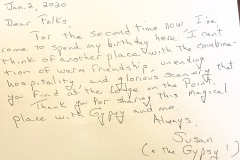 Jan. 2, 2020
Dear Folks,
For the second time now, I've
come to spend my birthday here. I can't
think of another place with the combina-
tion of warm friendship, unending
hospitality and glorious scenery that
you find at the Lodge on the Point.
Thank you for sharing this magical
place with Gypsy and me.
Always,
Susan
(& the Gypsy!)